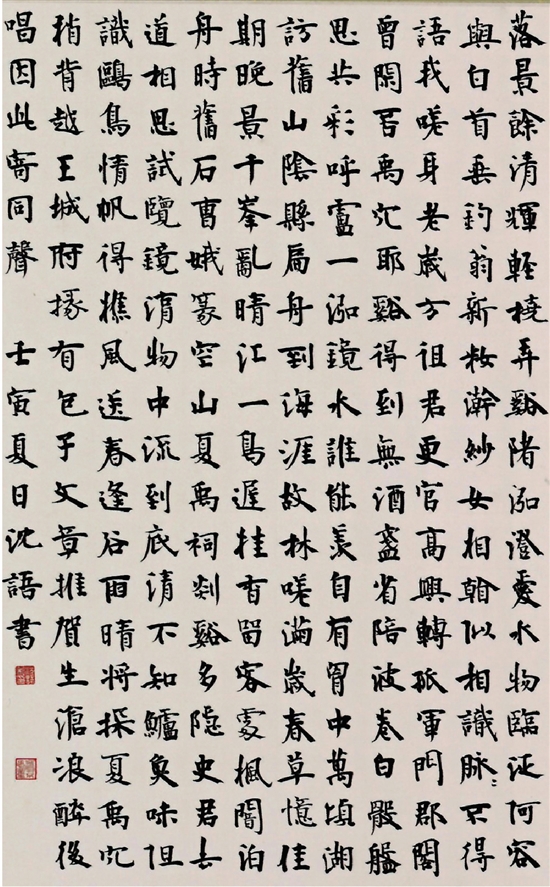 落景餘清輝輕橈弄谿渚泓澄愛水物臨泛何容
與白首垂釣翁新妝澣紗女相看似相識脉々不得
語我嗟身老歲方徂君更官高興轉孤軍門郡閣
曾閑否禹穴耶谿得到無酒盞省陪波卷白骰盤
思共彩呼盧一泓鏡水誰能羨自有胷中萬頃湖
訪舊山陰縣扁舟到海涯故林嗟滿歲春草憶佳
期晚景千峯亂晴江一鳥遲桂有留客處楓闇泊
舟時舊石曹娥篆空山夏禹祠剡谿多隱史君去
道相思試覽鏡湖物中流到底清不知鱸魚味但
識鷗鳥情帆得樵風送春逢谷雨晴將探夏禹穴
稍背越王城府掾有包子文章推賀生滄浪醉後
唱因此寄同聲 壬寅夏日沈語書